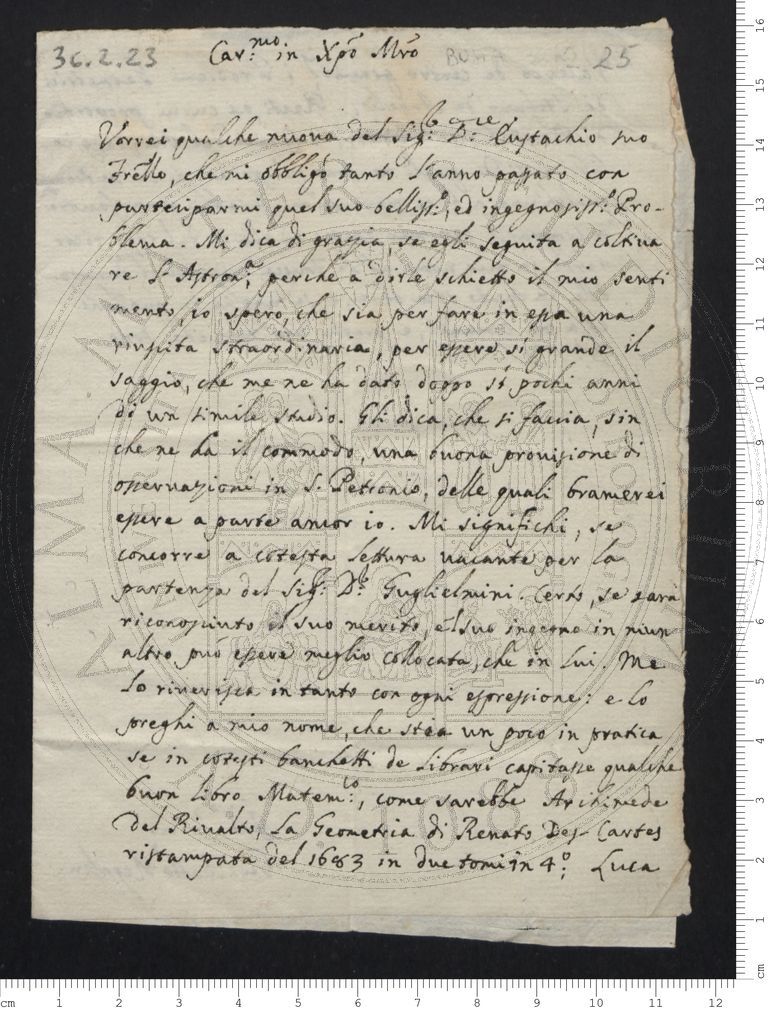 36.2.23
Car.mo in Xpo Mro
25
Vorrei qualche nuova del Sig.r D.re Eustachio suo
Frello, che mi obbligò tanto l'anno passato con
parteciparmi quel suo belliss.o, ed ingegnosiss.o Pro-
blema. Mi dica di grazia, se egli seguita a coltiva
re l'Astron.a, perche a dirle schietto il mio senti
mento, io spero, che sia per fare in essa una
riuscita straordinaria, per essere sì grande il
saggio, che me ne ha dato doppo sì pochi anni
di un simile studio. Gli dica, che si faccia, sin
che ne ha il commodo, una buona provisione di
osservazioni in S. Petronio, delle quali bramerei
essere a parte ancor io. Mi significhi, se
concorre a cotesta lettura vacante per la
partenza del Sig.r D.r Guglielmini. Certo, se sarà
riconosciuto il suo merito, e'l suo ingegno in niun
altro può essere meglio collocata, che in lui. Me
lo riverisca in tanto con ogni espressione: e lo
preghi a mio nome, che stia un poco in pratica
se in cotesti banchetti de librari capitasse qualche
buon libro Matem.co, come sarebbe Archimede
del Rivalto, La Geometria di Renato Des-Cartes
ristampata del 1683 in due tomi in 4.o; Luca